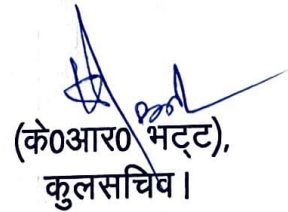 (के0आर0 भट्ट),
कुलसचिव।